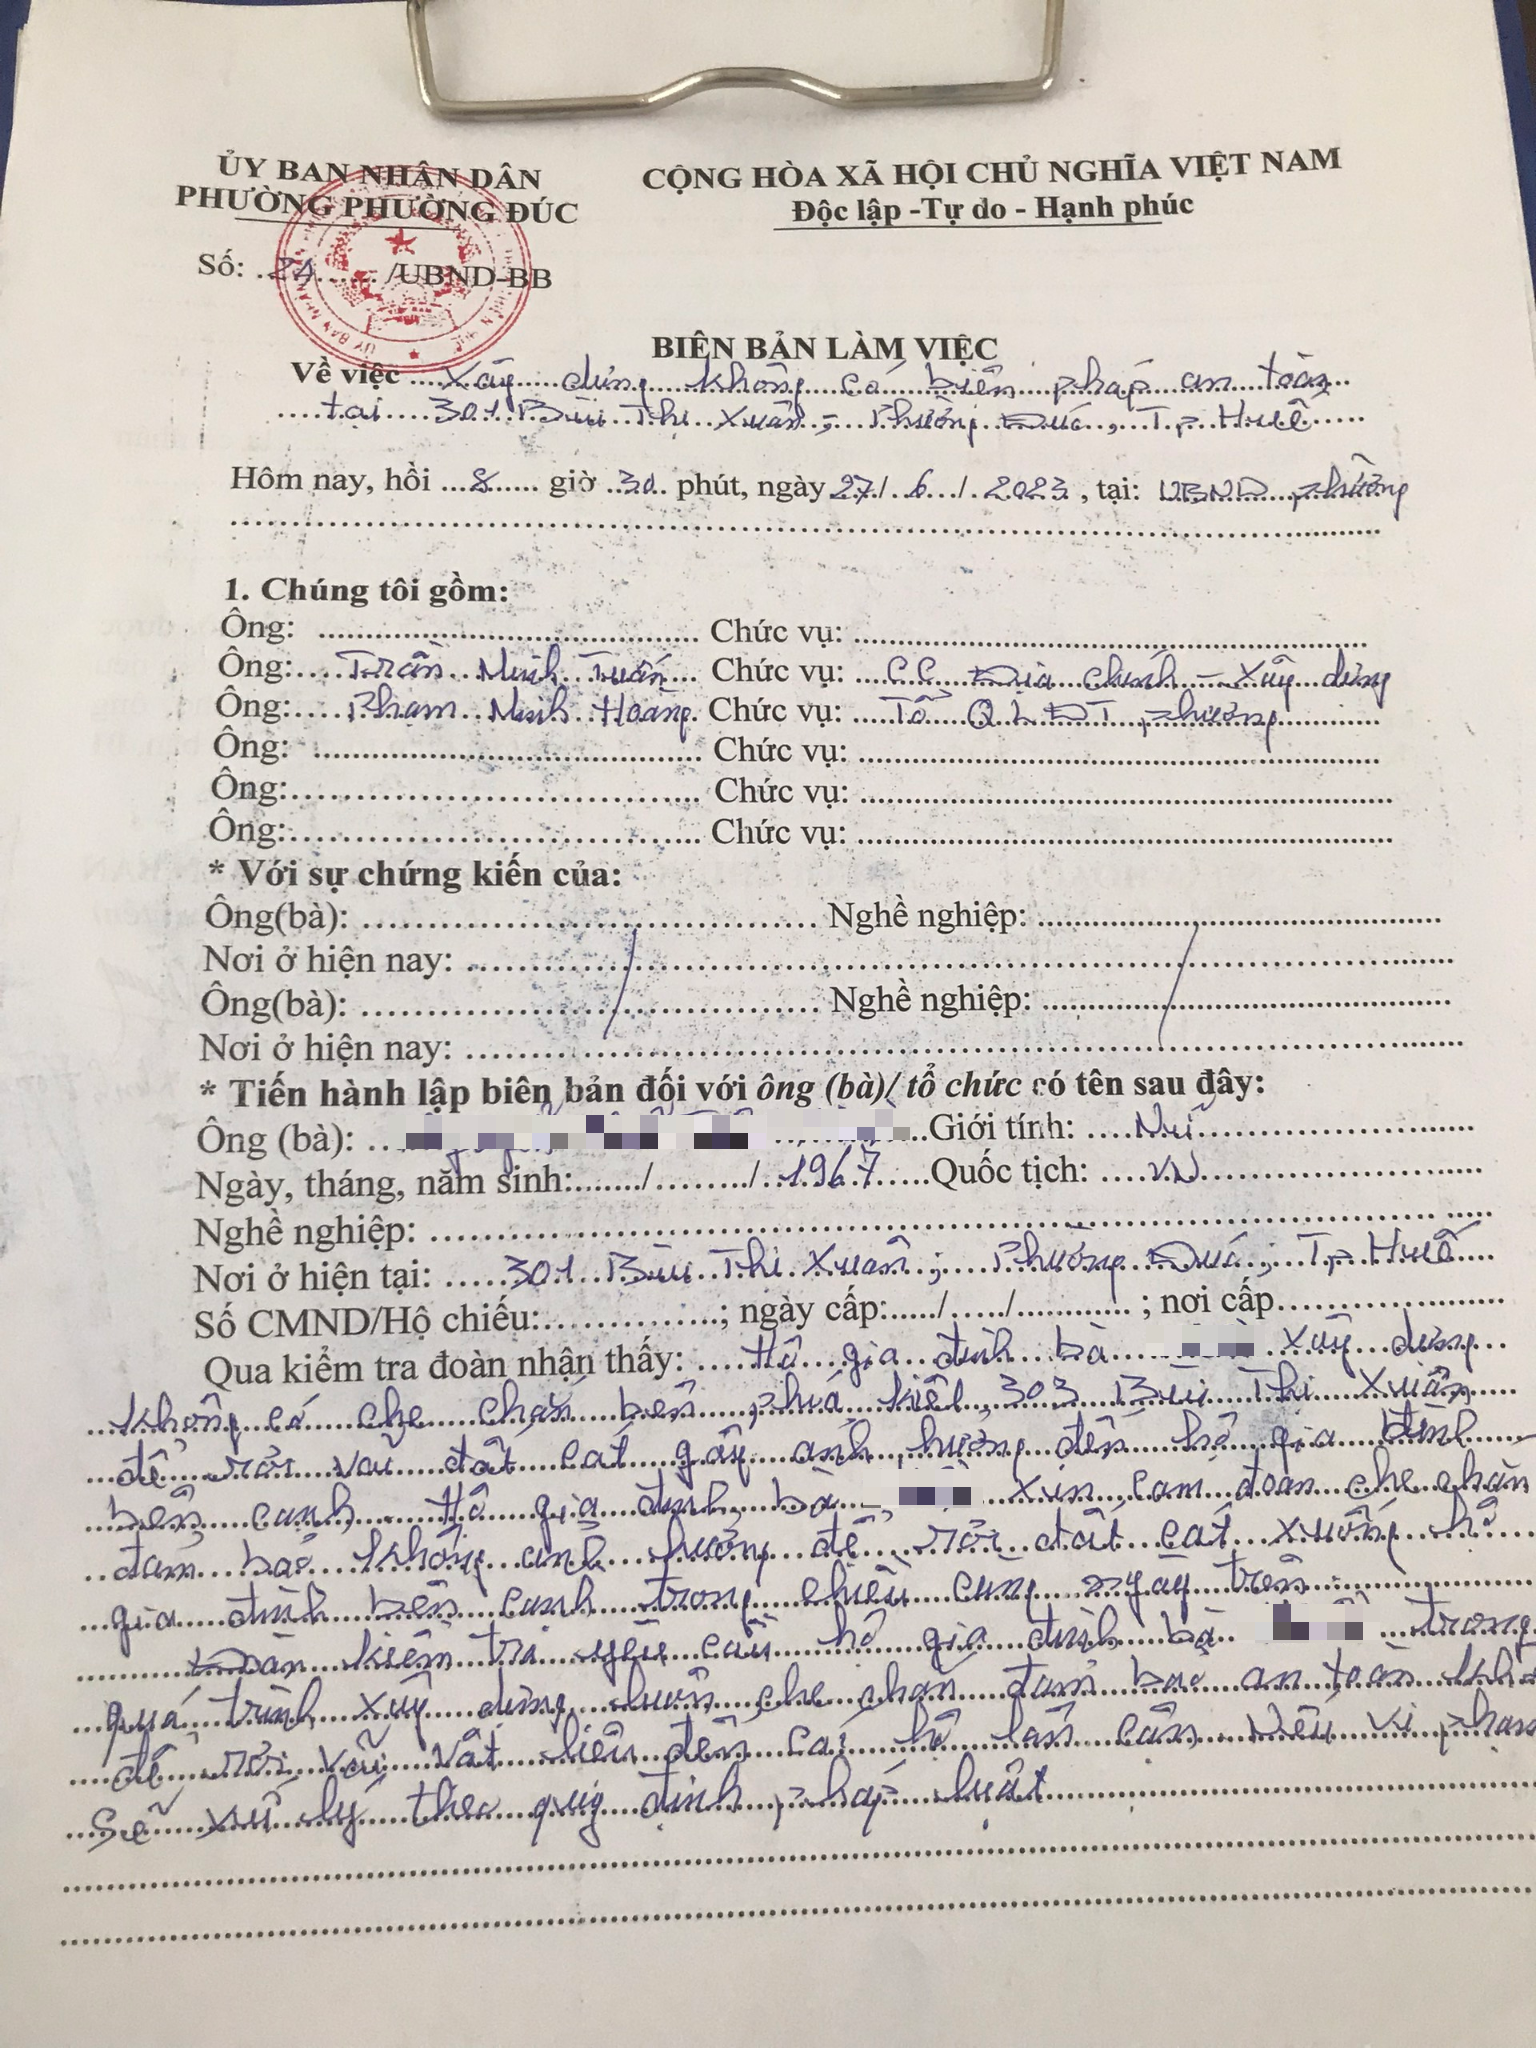 ỦY BAN NHÂN DÂN
PHƯỜNG PHƯỜNG ĐÚC
CỘNG HÒA XÃ HỘI CHỦ NGHĨA VIỆT NAM
Độc lập -Tự do - Hạnh phúc
Số: ......... /UBND-BB
BIÊN BẢN LÀM VIỆC
Về việc Xây dựng không có biện pháp an toàn
tại 301 Bùi Thị Xuân, Phường Đúc, Tp Huế
Hôm nay, hồi 8 giờ 30 phút, ngày 27/ 6 / 2023, tại: UBND phường
1. Chúng tôi gồm:
Ông: Chức vụ:
Ông: Trần Minh Tuấn Chức vụ: CC Địa chính - Xây dựng
Ông: Phạm Minh Hoàng Chức vụ: Tổ QLĐT phường
Ông: Chức vụ:
Ông: Chức vụ:
Ông: Chức vụ:
* Với sự chứng kiến của:
Ông(bà): Nghề nghiệp:
Nơi ở hiện nay:
Ông(bà): Nghề nghiệp:
Nơi ở hiện nay:
* Tiến hành lập biên bản đối với ông (bà)/ tổ chức có tên sau đây:
Ông (bà): Giới tính: Nữ
Ngày, tháng, năm sinh: / / 1967 Quốc tịch: VN
Nghề nghiệp:
Nơi ở hiện tại: 301 Bùi Thị Xuân; Phường Đúc; Tp Huế
Số CMND/Hộ chiếu: ; ngày cấp: / / ; nơi cấp
Qua kiểm tra đoàn nhận thấy: Hộ gia đình bà xây dựng
không có che chắn bên phía kiệt 303 Bùi Thị Xuân
để rơi vãi đất cát gây ảnh hưởng đến hộ gia đình
bên cạnh. Hộ gia đình bà xin cam đoan che chắn
đảm bảo không ảnh hưởng để rơi đất cát xuống hộ
gia đình bên cạnh trong chiều cùng ngày trên.
Đoàn kiểm tra yêu cầu hộ gia đình bà trong
quá trình xây dựng luôn che chắn đảm bảo an toàn không
để rơi vãi vật liệu đến các hộ lân cận. Nếu vi phạm
Sẽ xử lý theo quy định pháp luật